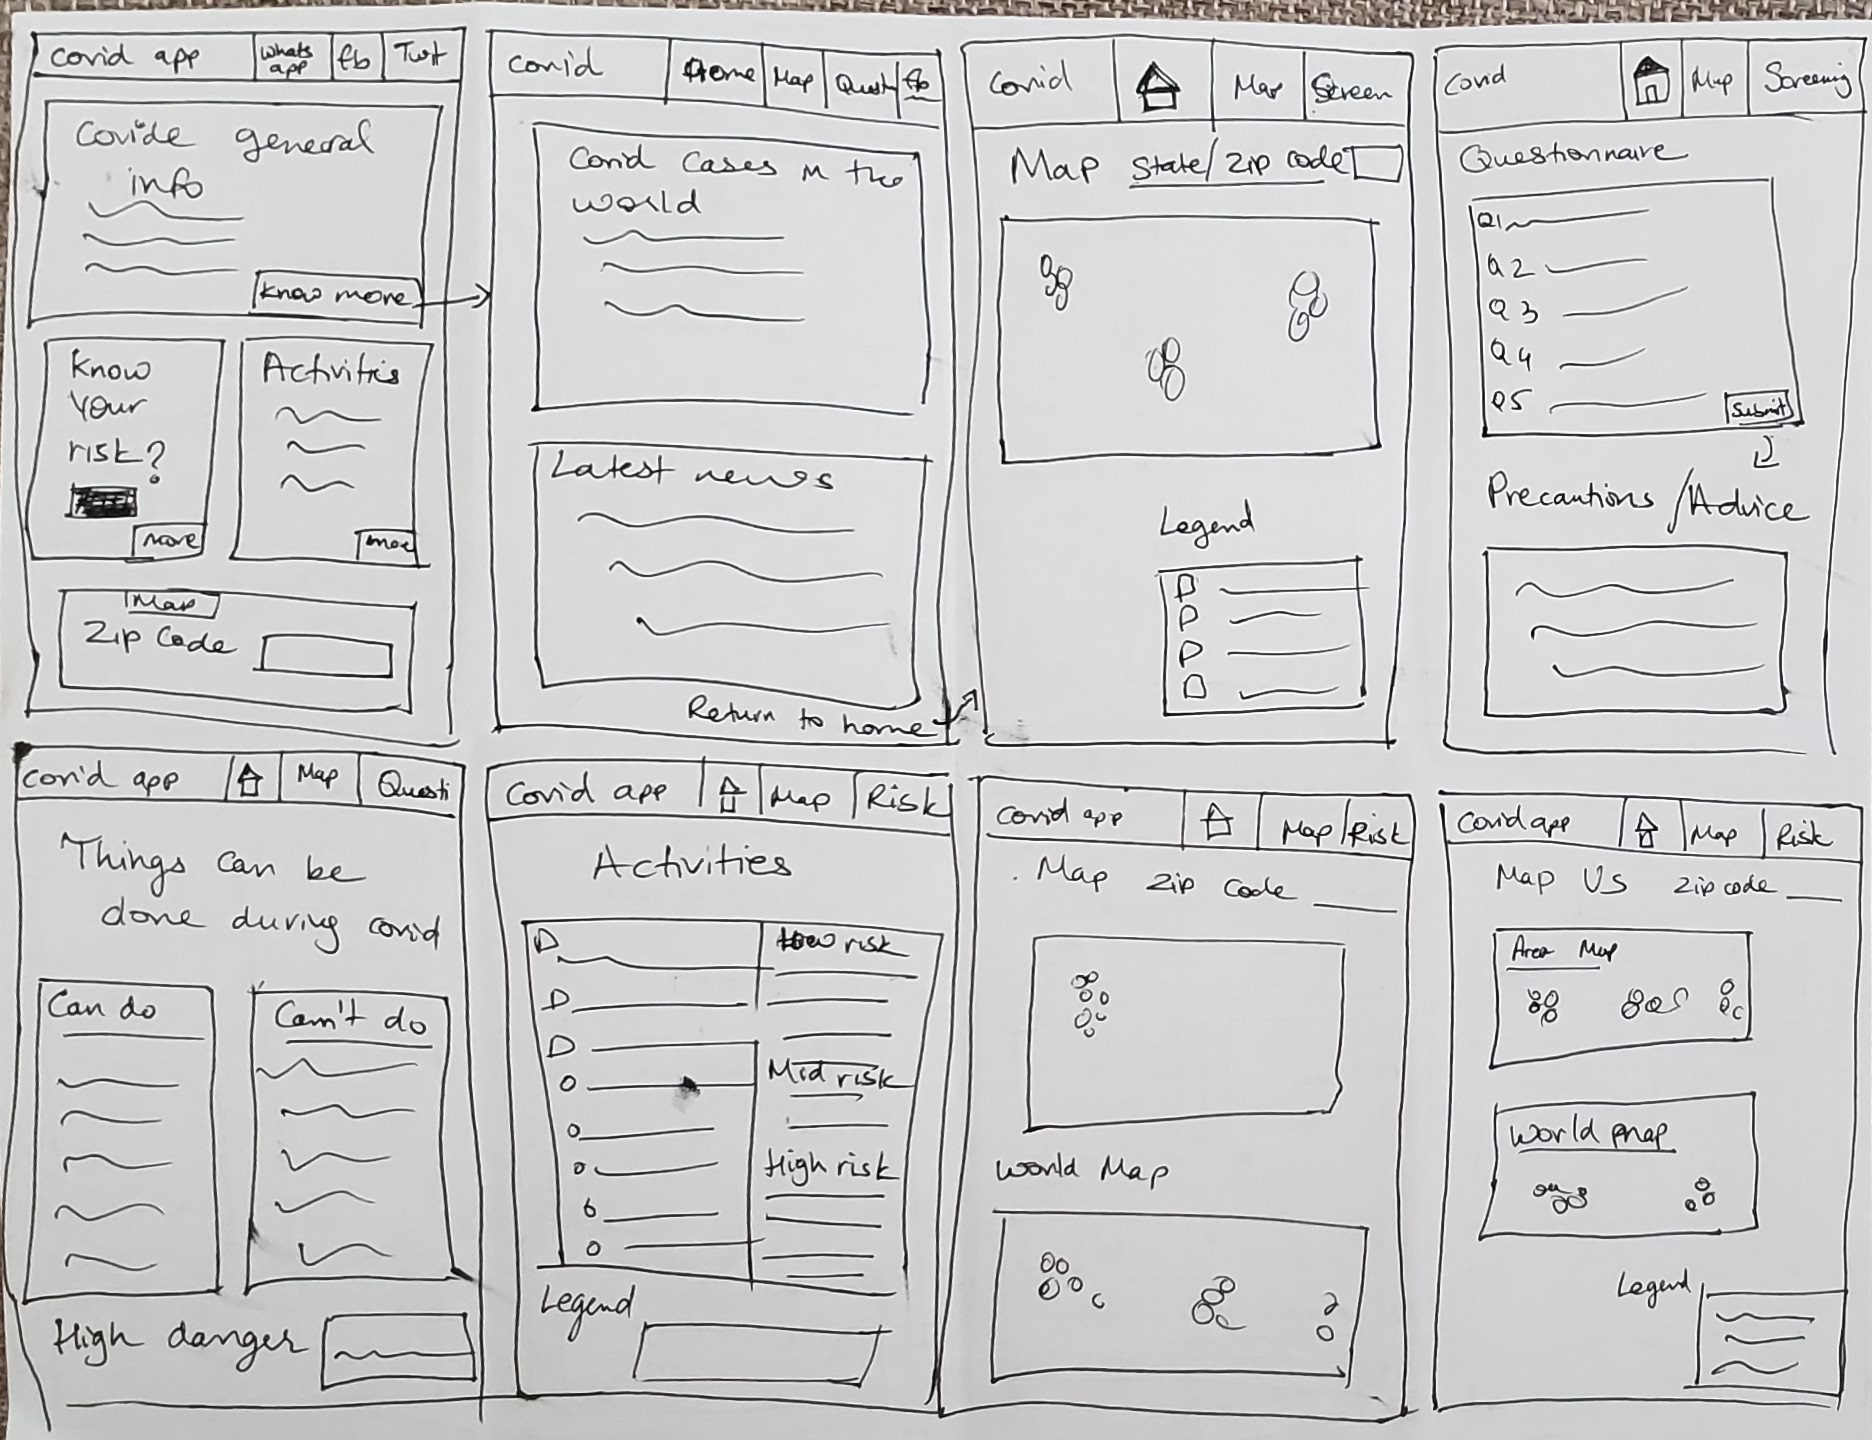 Covid app
Whats app
fb
Twt
Covide general
info
Know more
Know
Your
risk?
more
Activities
more
Map
Zip Code
Covid
Home
Map
Quest
fb
Covid Cases in the
world
Latest news
Return to home
Covid
Map
Screen
Map State/Zip code
Legend
Covid
Map
Screening
Questionnaire
Q1
Q2
Q3
Q4
Q5
Submit
Precautions/Advice
Covid app
Map
Questi
Things can be
done during covid
Can do
Can't do
High danger
Covid app
Map
Risk
Activities
Low risk
Mid risk
High risk
Legend
Covid app
Map
Risk
Map Zip Code
World Map
Covid app
Map
Risk
Map US Zip code
Area Map
World map
Legend